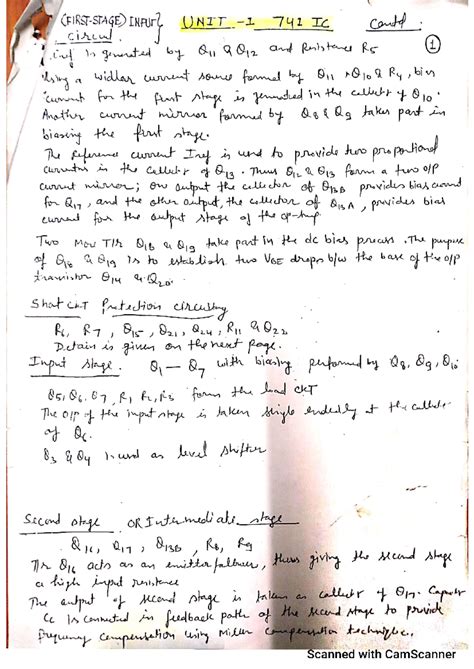 (FIRST-STAGE) INPUT} UNIT-1 741 IC Contd
circuit ①
Iref is generated by Q11 & Q12 and Resistance R5
Using a widlar current source formed by Q11 & Q10 & R4, bias
current for the first stage is generated in the collector of Q10.
Another current mirror formed by Q8 & Q9 takes part in
biasing the first stage.
The Reference current Iref is used to provide two proportional
currents in the collector of Q13. Thus Q12 & Q13 form a two o/p
current mirror; One output the collector of Q13B provides bias current
for Q17, and the other output, the collector of Q13A, provides bias
current for the output stage of the op-amp.
Two More T/R Q18 & Q19 take part in the dc bias process. The purpose
of Q18 & Q19 is to establish two VBE drops b/w the base of the o/p
transistor Q14 & Q20.
Short CKT Protection circuitry
R6, R7, Q15, Q21, Q24, R11 & Q22
Detain is given on the next page.
Input Stage. Q1 - Q7 with biasing performed by Q8, Q9, Q10
Q5, Q6, Q7, R1, R2, R3 form the load CKT
The O/P of the input stage is taken single endedly at the collector
of Q6.
Q3 & Q4 is used as level shifter
Second stage OR Intermediate stage
Q16, Q17, Q13B, R8, R9
T/r Q16 acts as an emitter follower, thus giving the second stage
a high input resistance
The output of second stage is taken as collector of Q17. Capacitor
Cc is connected in feedback path of the second stage to provide
frequency compensation using Miller compensation technique.
Scanned with CamScanner